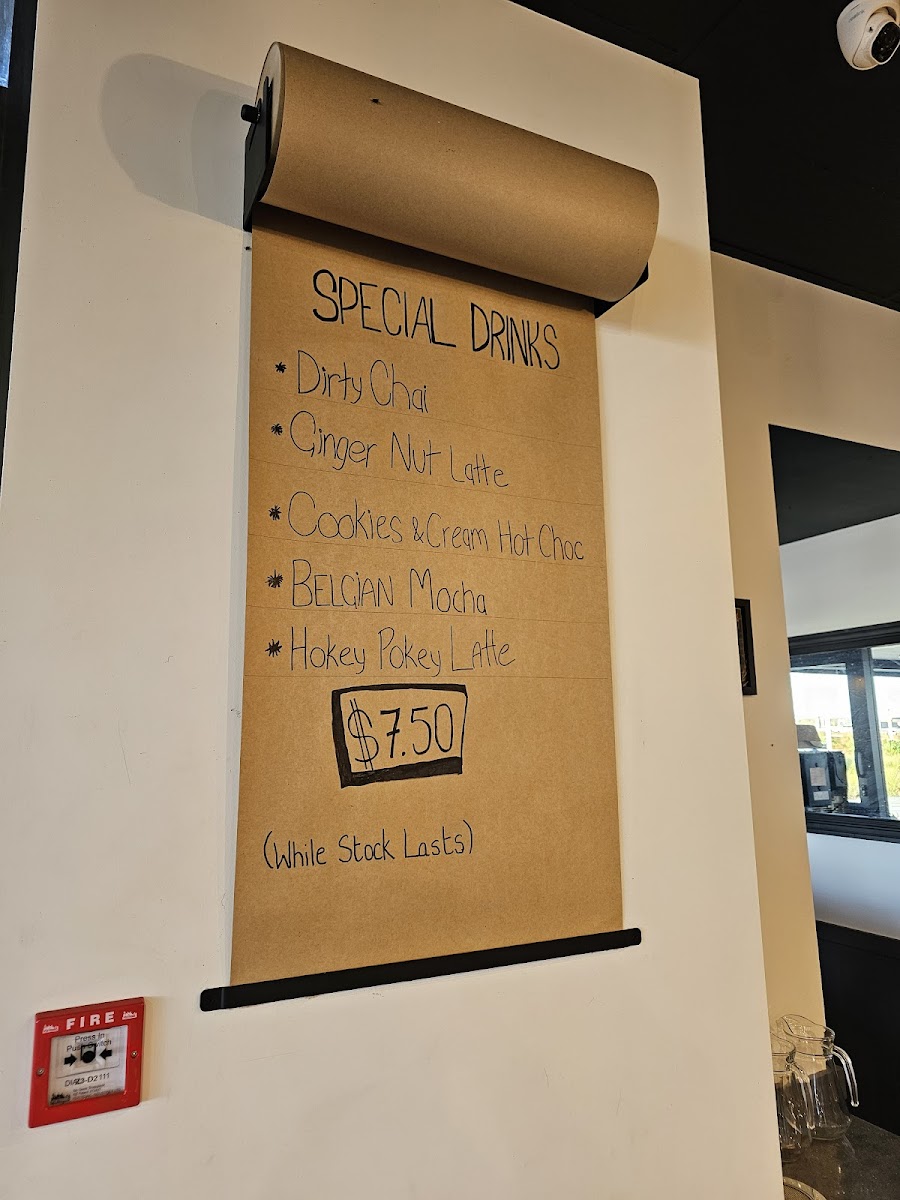 SPECIAL DRINKS
* Dirty Chai
* Ginger Nut Latte
* Cookies & Cream Hot Choc
* BELGIAN Mocha
* Hokey Pokey Latte
$7.50
(While Stock Lasts)
FIRE
Press In
Switch